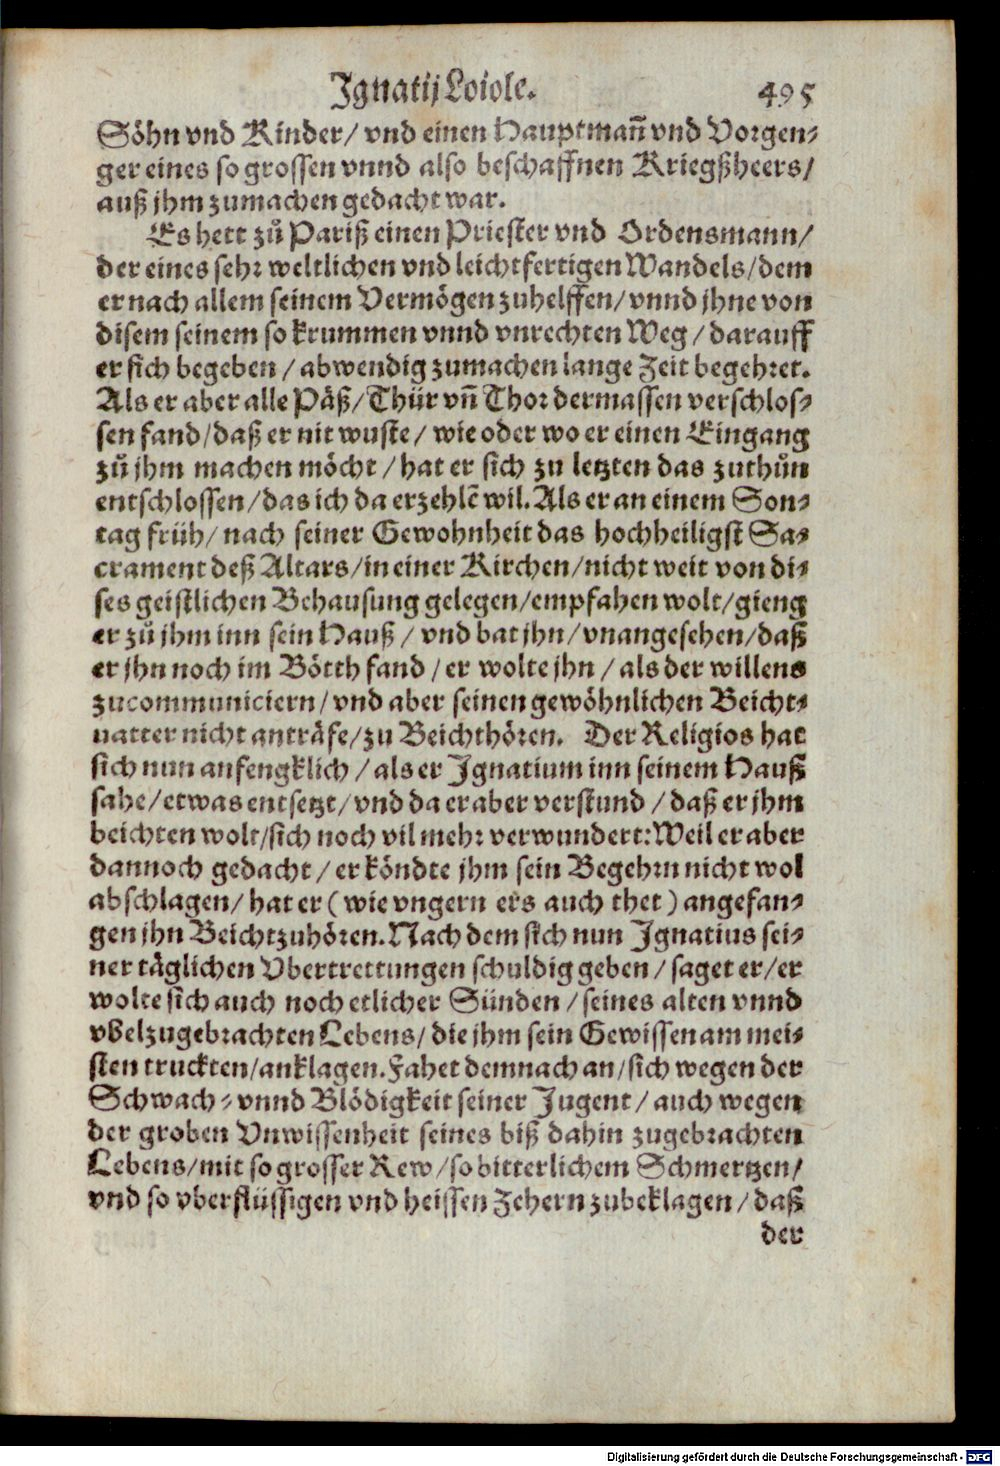 Ignatij Loiole. 495
Söhn vnd Kinder/ vnd einen Hauptmañ vnd Vorgen⸗
ger eines so grossen vnnd also beschaffnen Kriegßheers/
auß jhm zumachen gedacht war.
Es hett zů Pariß einen Priester vnd Ordensmann/
der eines sehr weltlichen vnd leichtfertigen Wandels/ dem
er nach allem seinem Vermögen zuhelffen/ vnnd jhne von
disem seinem so krummen vnnd vnrechten Weg/ darauff
er sich begeben/ abwendig zumachen lange Zeit begehret.
Als er aber alle Päß/ Thür vñ Thor dermassen verschlos⸗
sen fand/ daß er nit wuste/ wie oder wo er einen Eingang
zů jhm machen möcht/ hat er sich zu letzten das zuthůn
entschlossen/ das ich da erzehlẽ wil. Als er an einem Son⸗
tag früh/ nach seiner Gewohnheit das hochheiligst Sa⸗
crament deß Altars/ in einer Kirchen/ nicht weit von di⸗
ses geistlichen Behausung gelegen/ empfahen wolt/ gieng
er zů jhm inn sein Hauß/ vnd bat jhn/ vnangesehen/ daß
er jhn noch im Bötth fand/ er wolte jhn/ als der willens
zucommuniciern/ vnd aber seinen gewöhnlichen Beicht⸗
uatter nicht anträfe/ zu Beichthören. Der Religios hat
sich nun anfengklich/ als er Ignatium inn seinem Hauß
sahe/ etwas entsetzt/ vnd da er aber verstund/ daß er jhm
beichten wolt/ sich noch vil mehr verwundert: Weil er aber
dannoch gedacht/ er köndte jhm sein Begehrn nicht wol
abschlagen/ hat er (wie vngern ers auch thet) angefan⸗
gen jhn Beichtzuhören. Nach dem sich nun Ignatius sei⸗
ner täglichen Vbertrettungen schuldig geben/ saget er/ er
wolte sich auch noch etlicher Sünden/ seines alten vnnd
vbelzugebrachten Lebens/ die jhm sein Gewissen am mei⸗
sten truckten/ anklagen. Fahet demnach an/ sich wegen der
Schwach⸗ vnnd Blödigkeit seiner Jugent/ auch wegen
der groben Vnwissenheit seines biß dahin zugebrachten
Lebens/ mit so grosser Rew/ so bitterlichem Schmertzen/
vnd so vberflüssigen vnd heissen Zehern zubeklagen/ daß
der
Digitalisierung gefördert durch die Deutsche Forschungsgemeinschaft - DFG